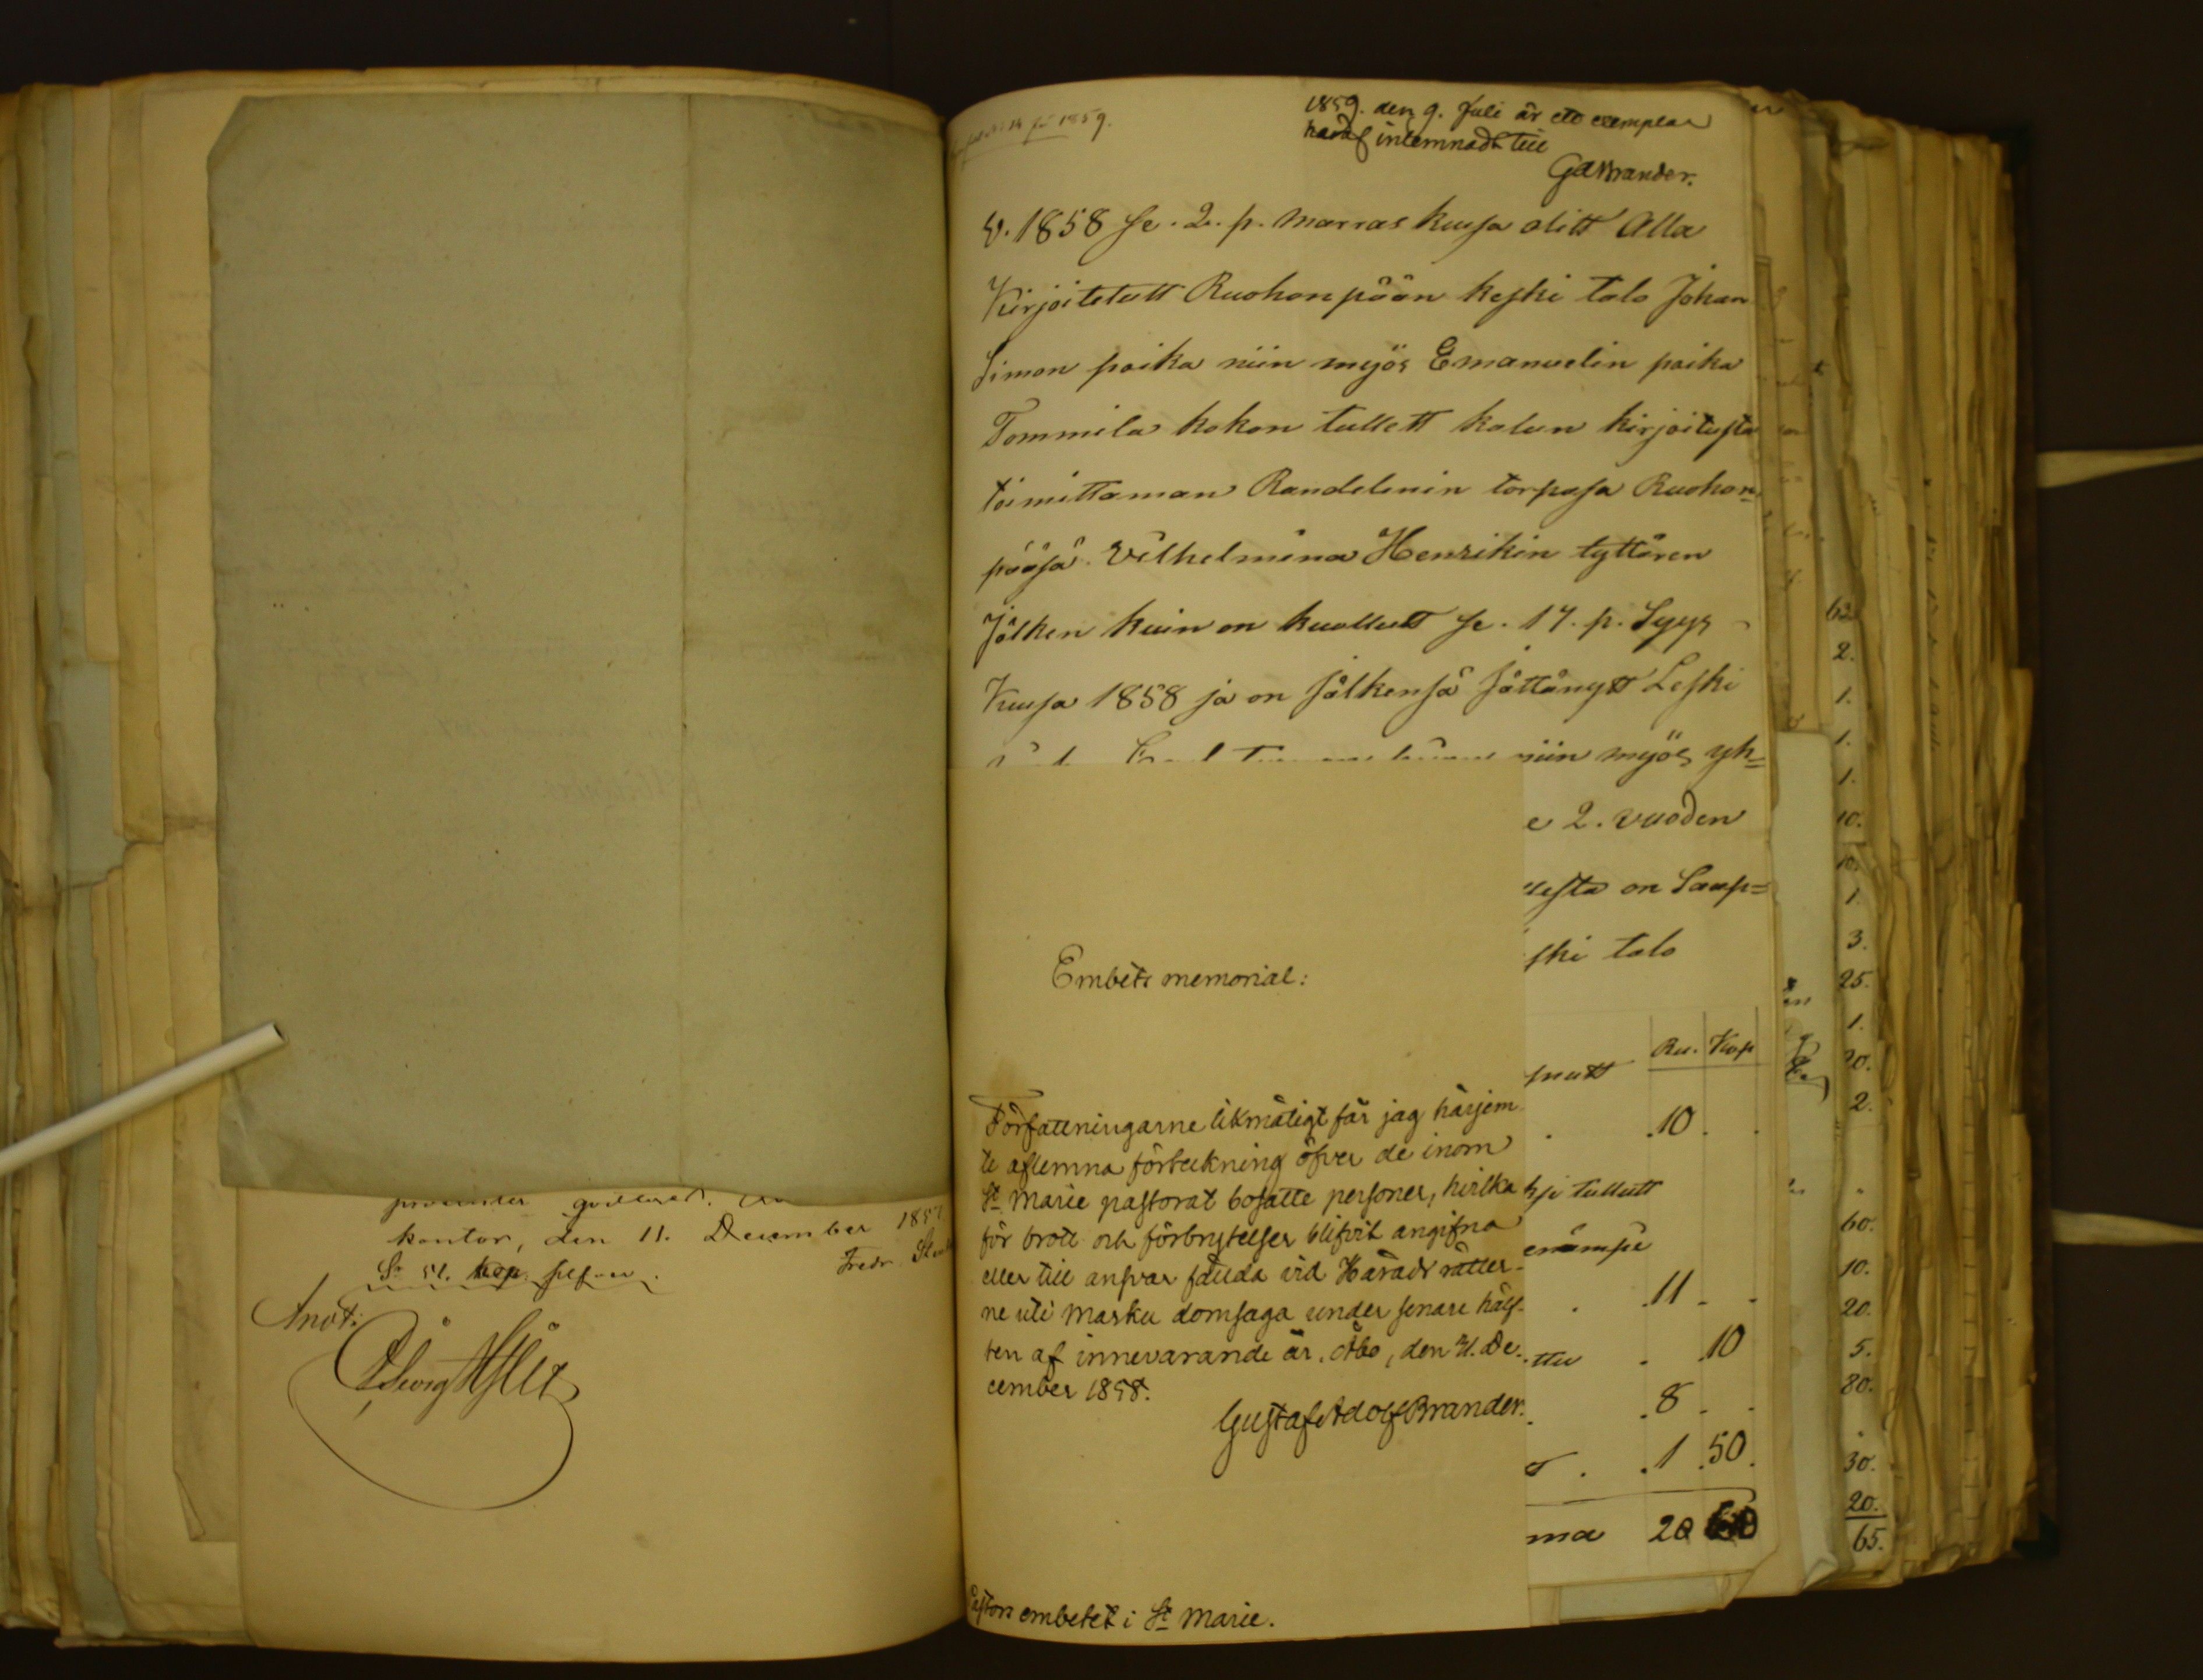 kontor, den 11. December 1857.
Fredr.
Anot:
1859.
1859. den 9. Juli är ett exemplar
häraf inlemnadt till
GABrander.
V. 1858 se. 2. p. marras kuusa olitt Alla
Kirjoitetutt Ruohonpään keski talo Johan
Simon poika niin myös Emanuelin poika
Tommila kokon tullett kalun kirjoitusta
toimittaman Randelinin torpasa Ruohon=
pääsä. Vilhelmina Henrikin tyttären
Jälken kuin on kuollutt se. 17. p. Syys
Kuusa 1858 ja on jälkensä jättänytt Leski
niin myös yh=
e 2. vuoden
uesta on Saap=
ski talo
Embets memorial:
Författningarne likmätigt får jag härjem
te aflemna förteckning öfver de inom
St Marie pastorat bosatte personer, hvilka
för brott och förbrytelser blifvit angifna
eller till ansvar fälda vid Härads rätter-
ne uti Masku domsaga under senare hälf-
ten af innevarande år. Åbo, den 31. De-
cember 1858.
GustafAdolfBrander.
Pastors embetet i St Marie.
Ru. Kop
10
tullutt
11
ttu 10
8
1 50
ma 20 60
62
2.
1.
1.
1.
10.
10.
1
3.
25.
1.
20.
2.
60.
10.
20.
5.
80.
30.
20.
65.